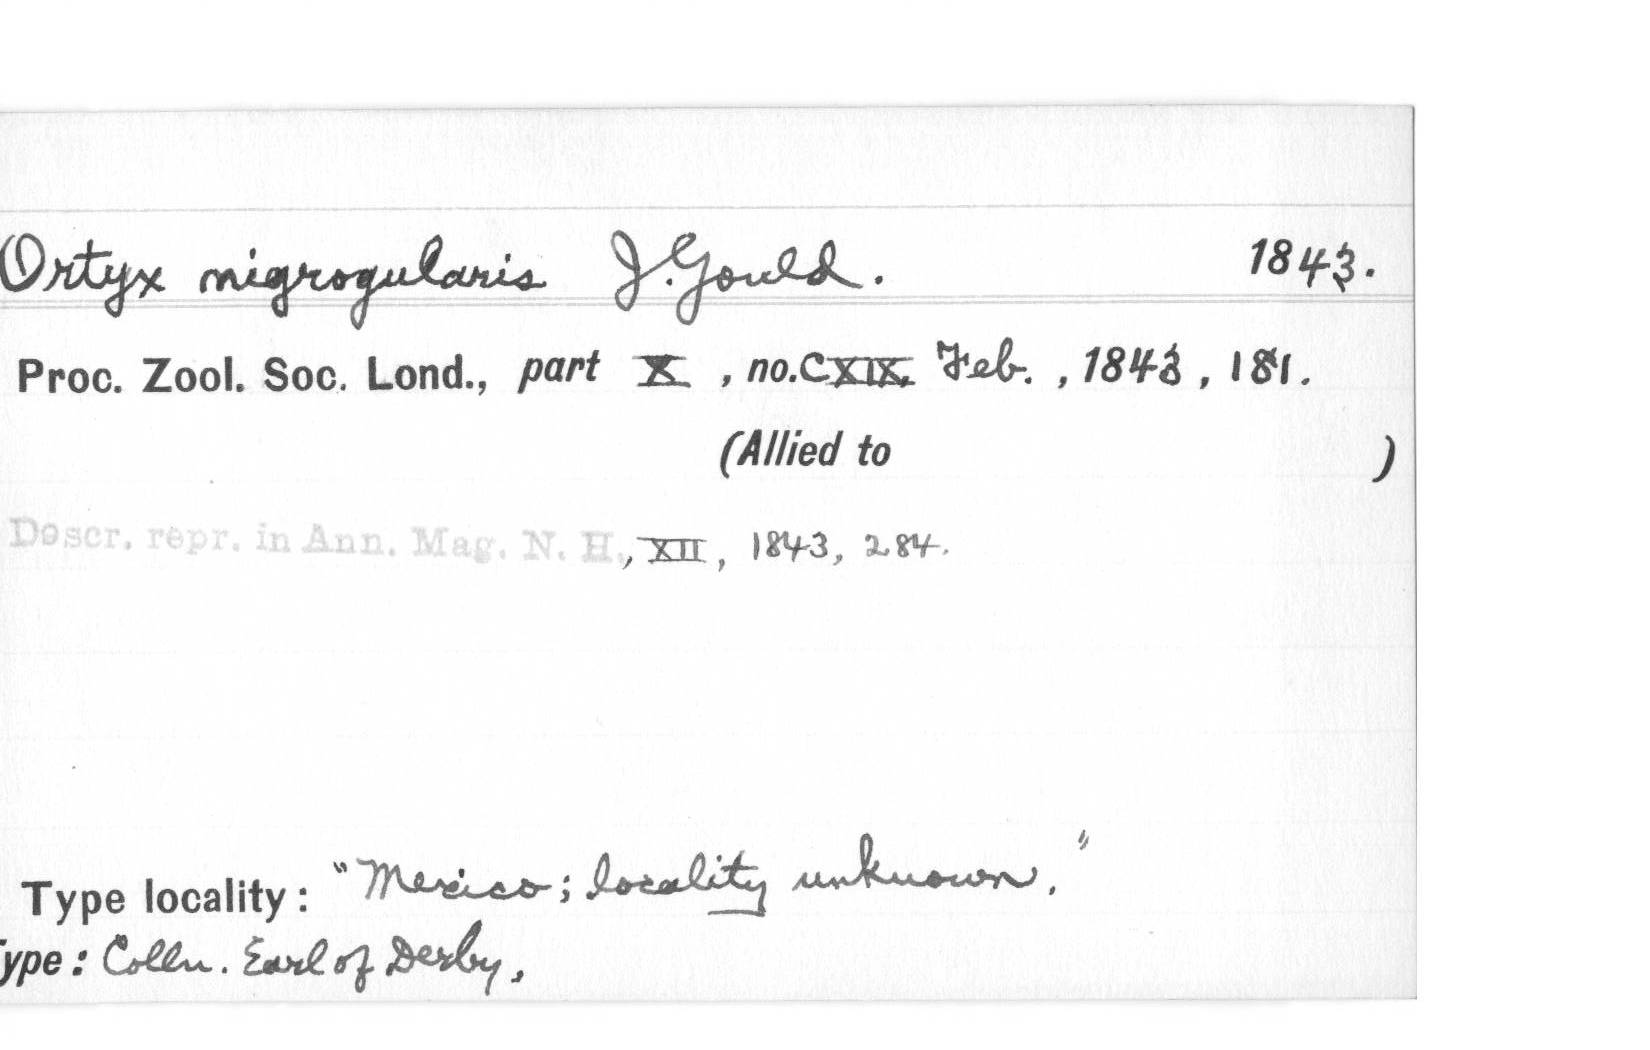 Ortyx nigrogularis J. Gould. 1843.
Proc. Zool. Soc. Lond., part X, no. CXIX, Feb., 1843, 181.
(Allied to )
Descr. repr. in Ann. Mag. N. H., XII, 1843, 284.
Type locality: "Mexico; locality unknown."
Type: Colln. Earl of Derby.